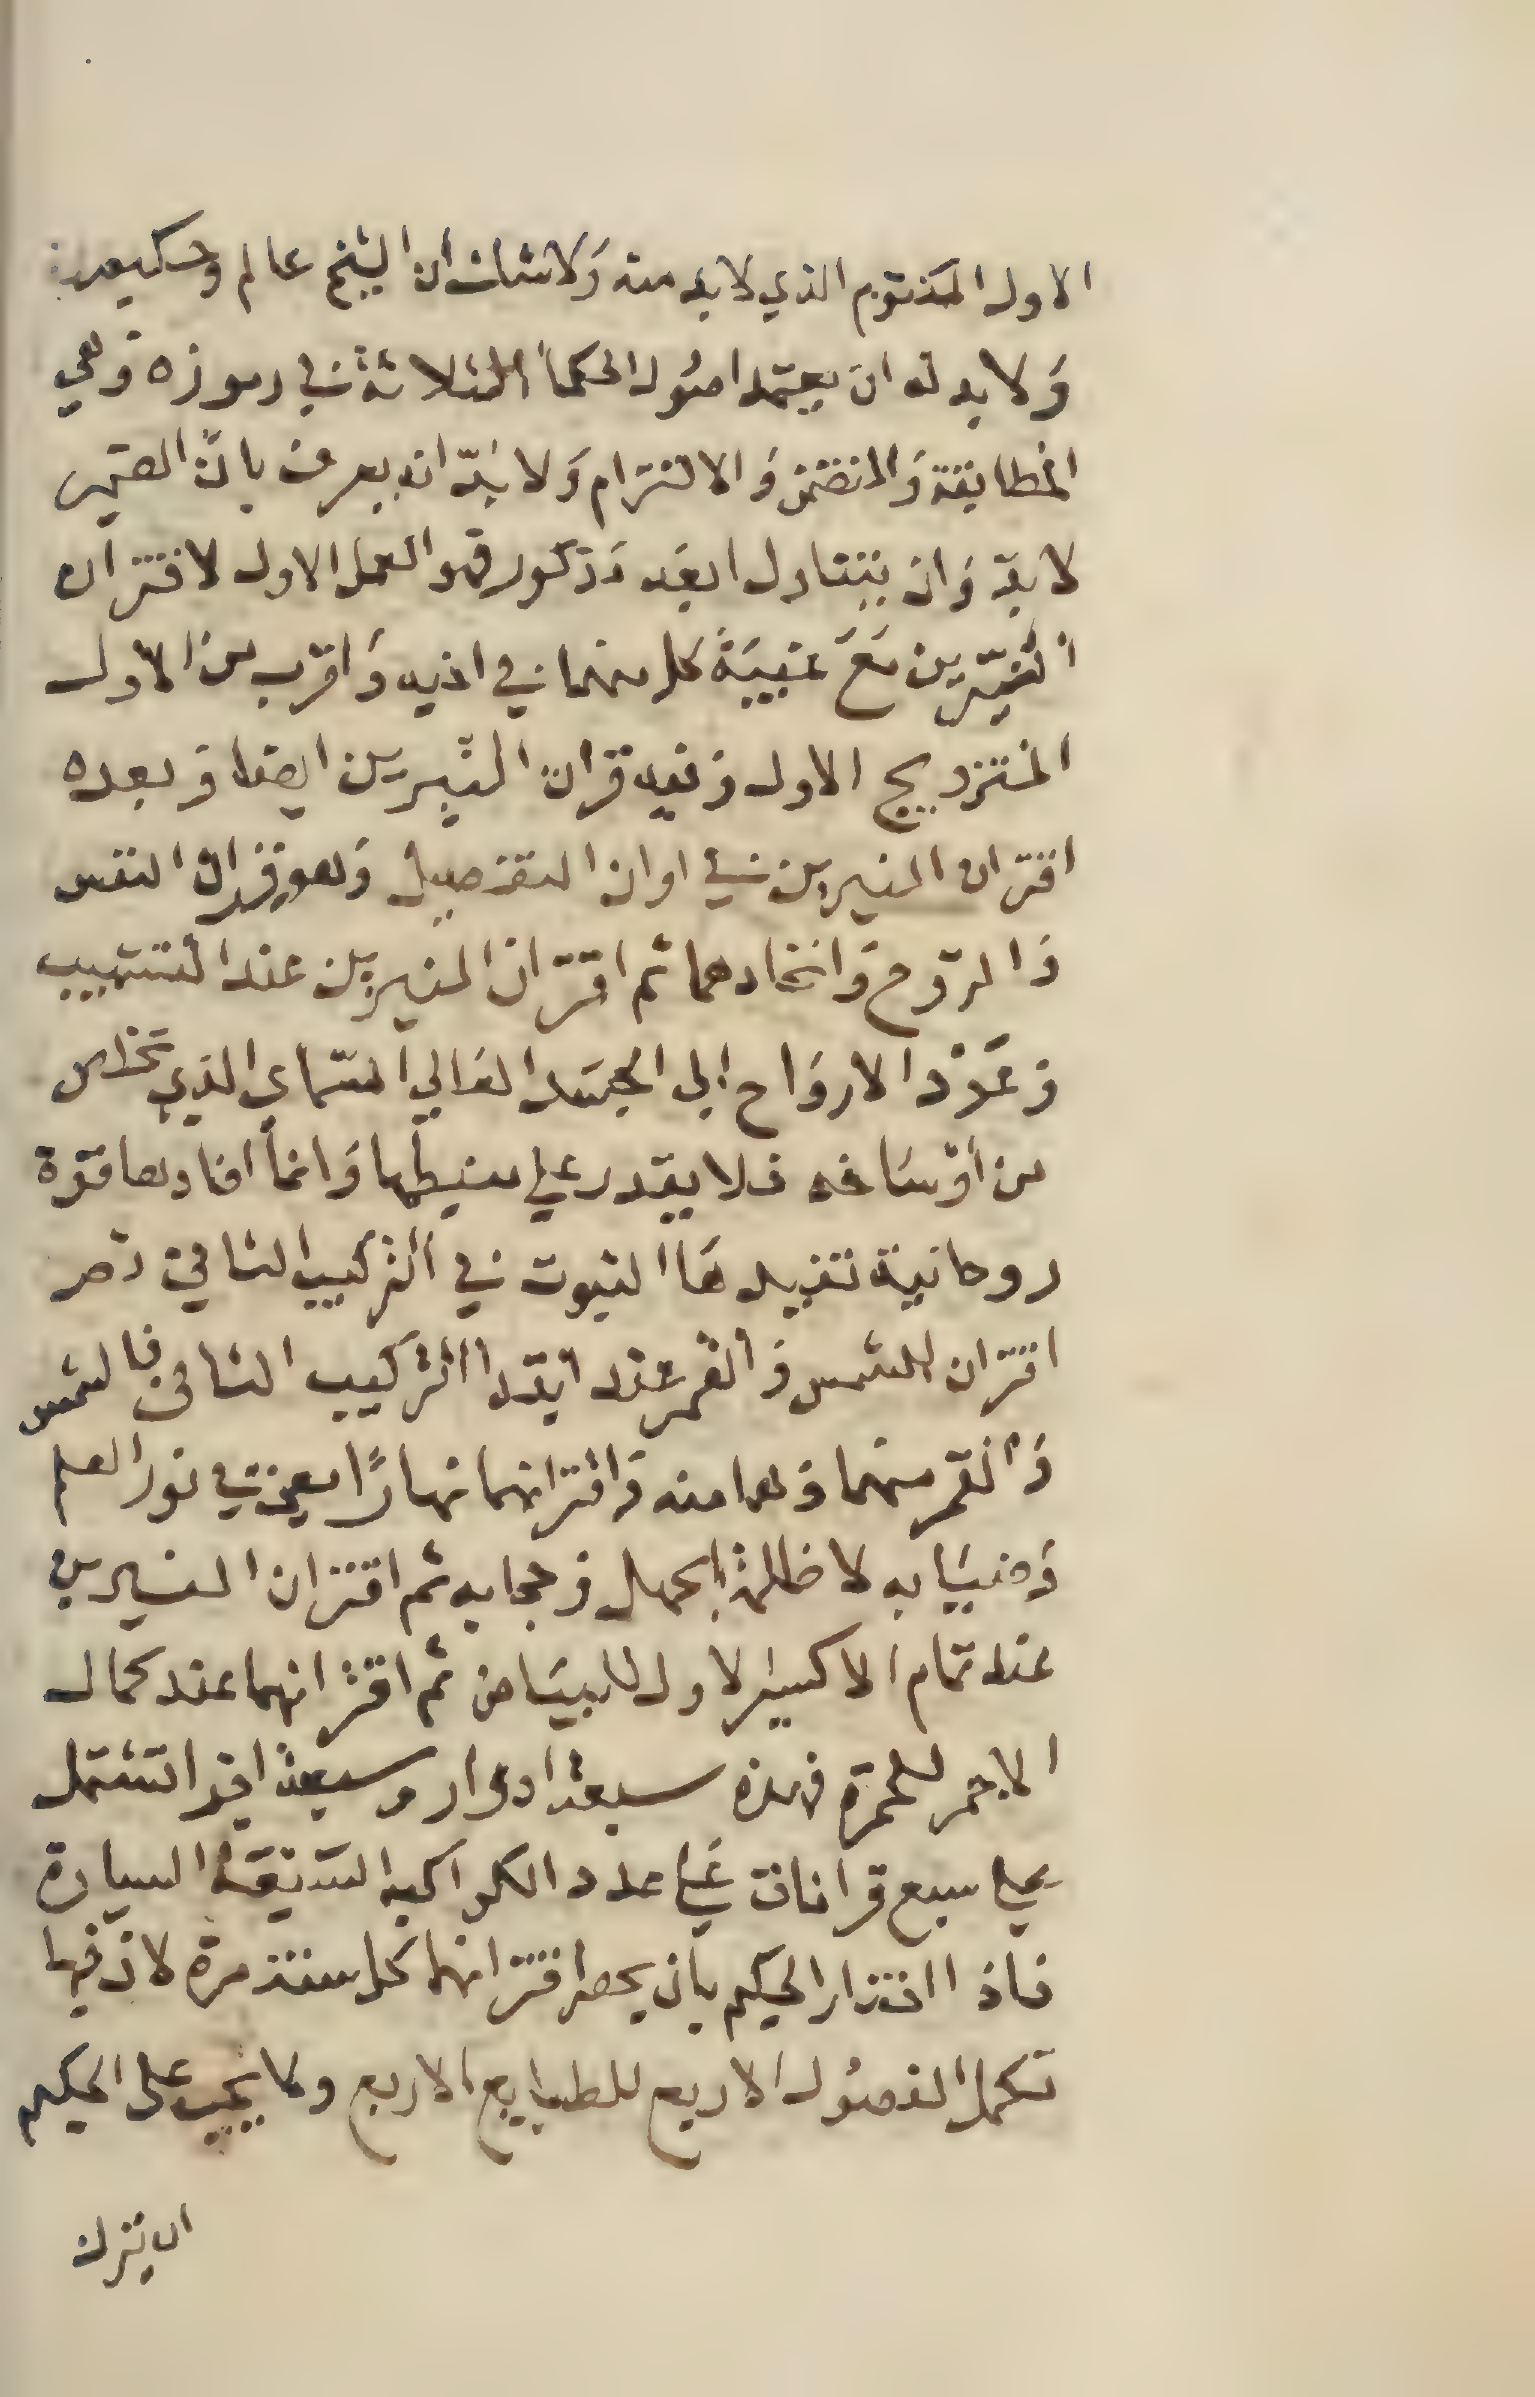 الاول المكتوم الذي لا بد منه ولا شك ان الشيخ عالم وحكيم
ولا بد له ان يعتمد اصول الحكما الثلاثة في رموزه وهي
المطابقة والتضمن والالتزام ولا بد انه يعرف بان القمر
لا بد وان يتناول ابعد مذكور فهو العمل الاول لاقتران
النيرين مع غيبة كل منهما في اخيه واقرب من الاول
التزويج الاول وفيه قران النيرين ايضا وبعده
اقتران النيرين في اوان التفصيل وهو قران النفس
والروح واتحادهما ثم اقتران النيرين عند التشبيب
وعود الارواح الى الجسد الغالي السماي الذي تخلص
من اوساخه فلا يقدر على ضبطها وانما افادها قوة
روحانية تفيدها الثبوت في التركيب الثاني ثم
اقتران الشمس والقمر عند ابتدا التركيب الثاني فالشمس
والقمر منهما وهما منه واقترانهما نهارا يعني في نور العلم
وضيايه لا ظلمة الجهل وحجابه ثم اقتران النيرين
عند تمام الاكسير الاول للبياض ثم اقترانهما عند كمال
الاحمر للحمرة فهذه سبعة ادوار وسبعة تشتمل
على سبع قرانات على عدد الكواكب السبعة السيارة
فاذا اختار الحكيم بان يحصر اقترانهما كل سنة مرة لان فيها
تكمل الفصول الاربع للطبايع الاربع ولا يجب على الحكيم
ان يترك